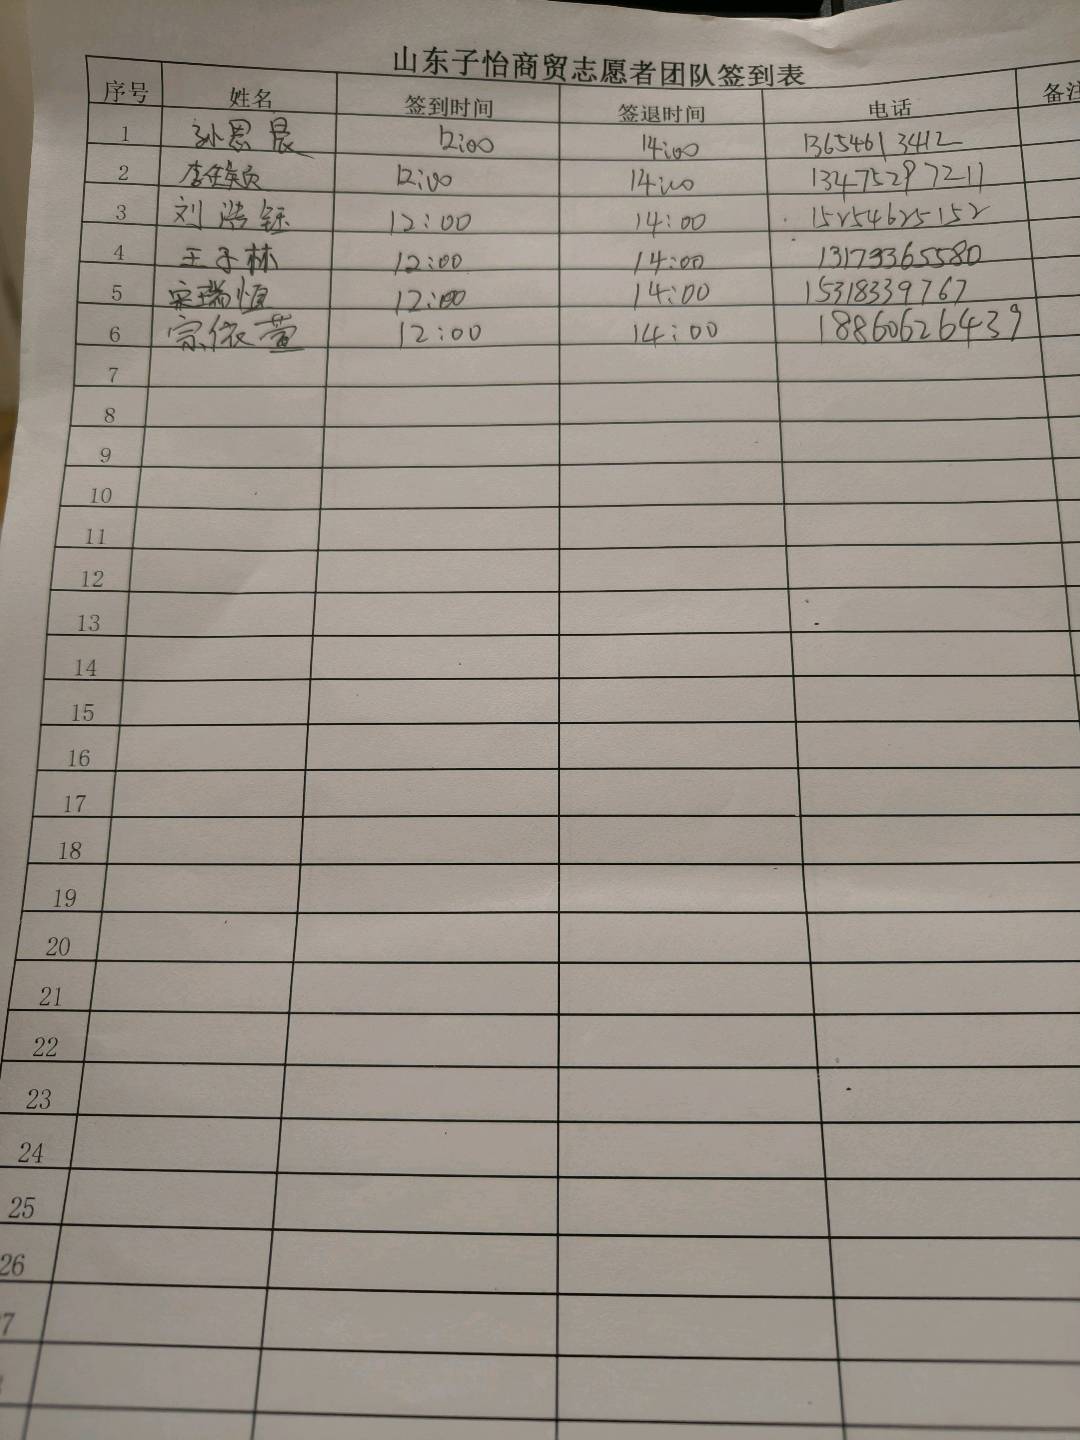 山东子怡商贸志愿者团队签到表
序号 姓名 签到时间 签退时间 电话 备注
1 孙思晨 12:00 14:00 13654613412
2 李 12:00 14:00 13475297211
3 刘浩钰 12:00 14:00 15254625152
4 王子林 12:00 14:00 13173365580
5 宋瑞恒 12:00 14:00 15318339767
6 宗依萱 12:00 14:00 18860626439
7
8
9
10
11
12
13
14
15
16
17
18
19
20
21
22
23
24
25
26
7